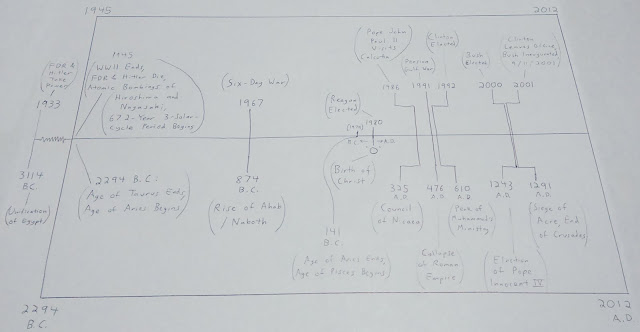 1945
2012
1945
(WWII Ends,
FDR & Hitler Die,
Atomic Bombings of
Hiroshima and
Nagasaki,
672-Year 3-Solar-
Cycle Period Begins)
(FDR &
Hitler
Take
Power)
1933
(Six-Day War)
1967
(Reagan
Elected)
1980
(Pope John
Paul II
Visits
)
1986
(Persian
Gulf War)
1991
(Clinton
Elected)
1992
(Bush
Elected)
2000
(Clinton
Leaves Office,
Bush Inaugurated,
9/11/2001)
2001
B.C.
A.D.
3114
B.C.
(Unification
of Egypt)
2294 B.C.:
(Age of Taurus Ends,
Age of Aries Begins)
874
B.C.
(Rise of Ahab
/ Naboth)
(Birth of
Christ)
141
B.C.
(Age of Aries Ends,
Age of Pisces Begins)
325
A.D.
(Council
of Nicaea)
476
A.D.
(Collapse
of Roman
Empire)
610
A.D.
(Start of
Muhammad's
Ministry)
1243
A.D.
(Election
of Pope
Innocent IV)
1291
A.D.
(Siege of
Acre, End
of Crusades)
2294
B.C.
2012
A.D.